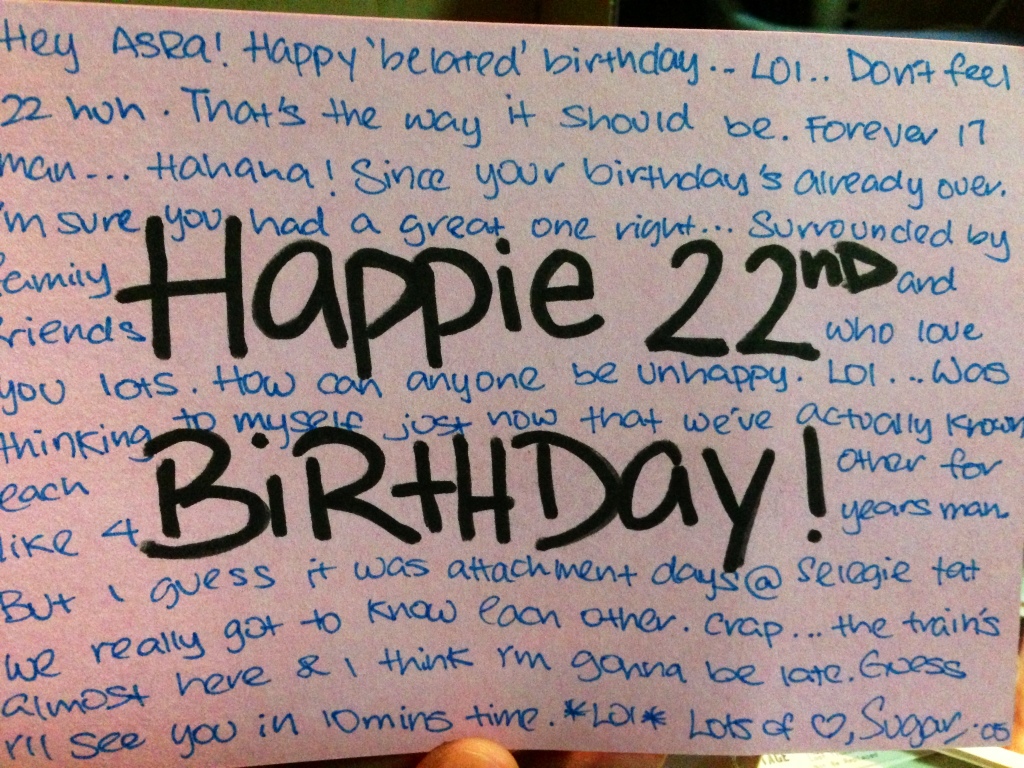 Hey ASRA! Happy 'belated' birthday... LOl.. Don't feel
22 huh. That's the way it should be. Forever 17
man... Hahaha! Since your birthday's already over.
I'm sure you had a great one right... Surrounded by
family and
friends who love
Happie 22nD
you lots. How can anyone be unhappy. LOl... Was
thinking to myself just now that we've actually known
each other for
like 4 years man.
BiRtHDay!
But I guess it was attachment days @ Selegie tat
we really got to know each other. Crap... the train's
almost here & I think I'm gonna be late. Guess
I'll see you in 10mins time. *LOl* Lots of ♡, Sugar